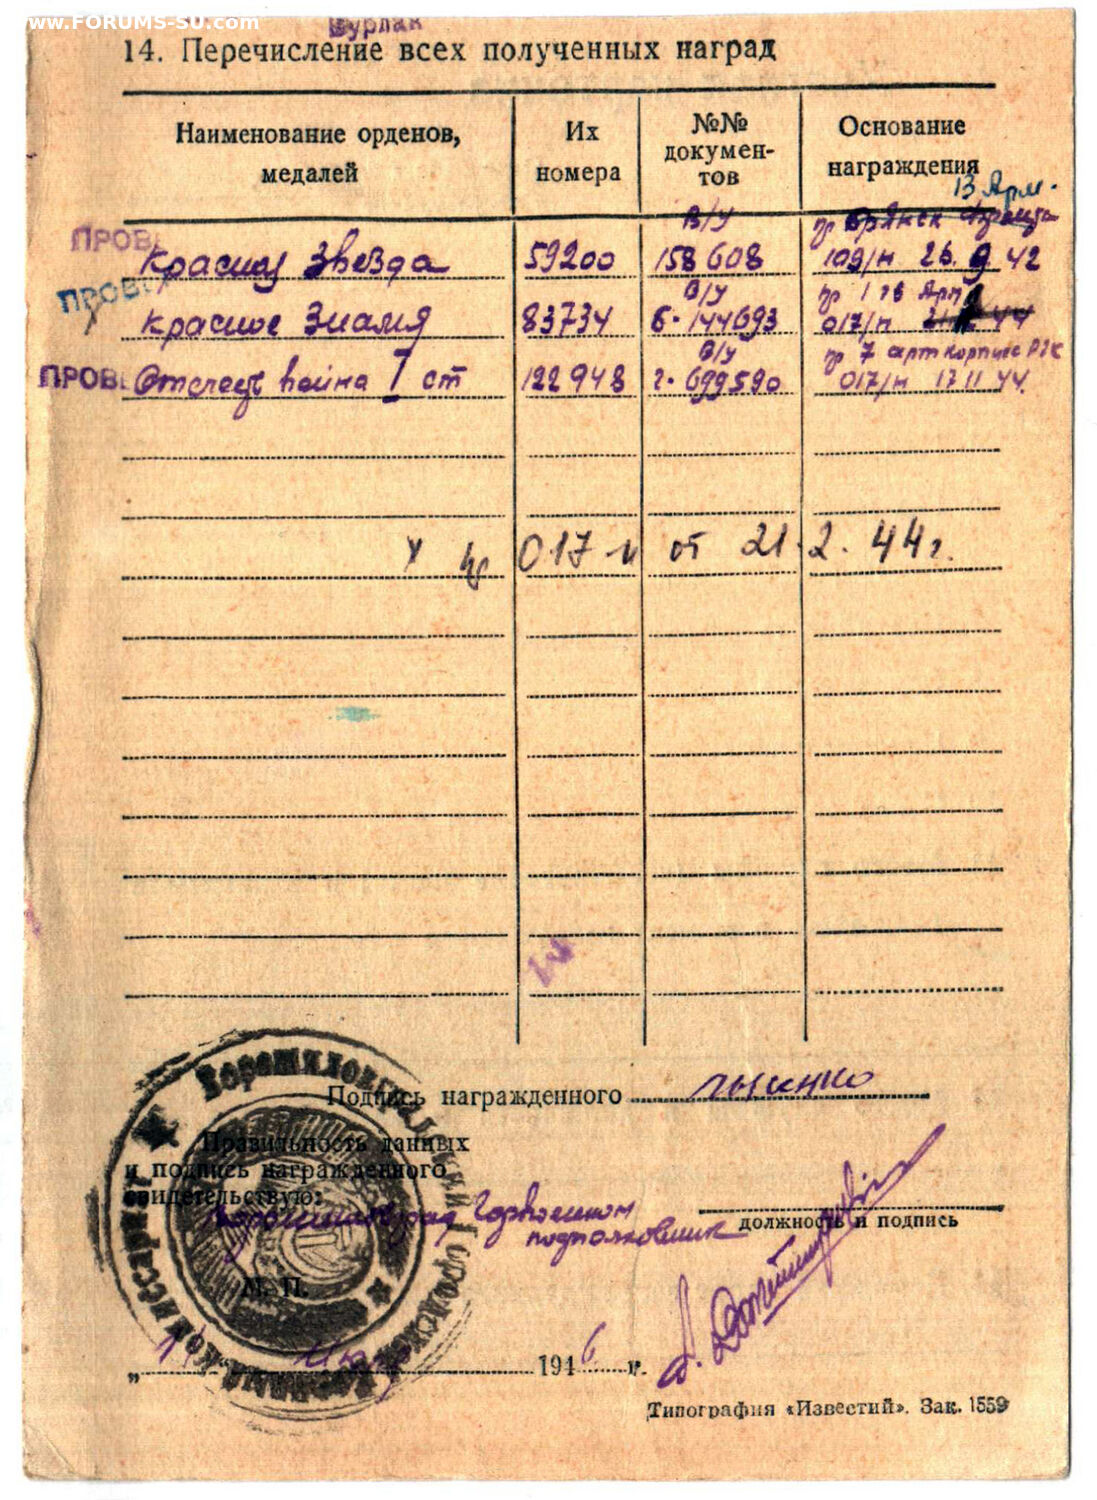 www.FORUMS-SU.com
Бурлак
14. Перечисление всех полученных наград
Наименование орденов, медалей
Их номера
№№ докумен-тов
Основание награждения
13 Арм.
В/У
пр Брянск Фронта
ПРОВЕ
Красная Звезда 59200 158608 109/н 26. 9 42
В/У
пр 1 гв Арт
ПРОВЕ
Красное Знамя 83734 б-144693 017/н 44
В/У
пр 7 арт корпуса РГК
ПРОВЕ
Отечеств война I ст 122948 г-699590 017/н 17 11 44
017 н от 21.2.44г.
Подпись награжденного Лысенко
Правильность данных
и подпись награжденного
свидетельствую:
Ворошиловград Горвоенком
подполковник
должность и подпись
М. П.
„ июня 1946 г.
Типография «Известий». Зак. 1559
Ворошиловградский Городской Военный комиссариат